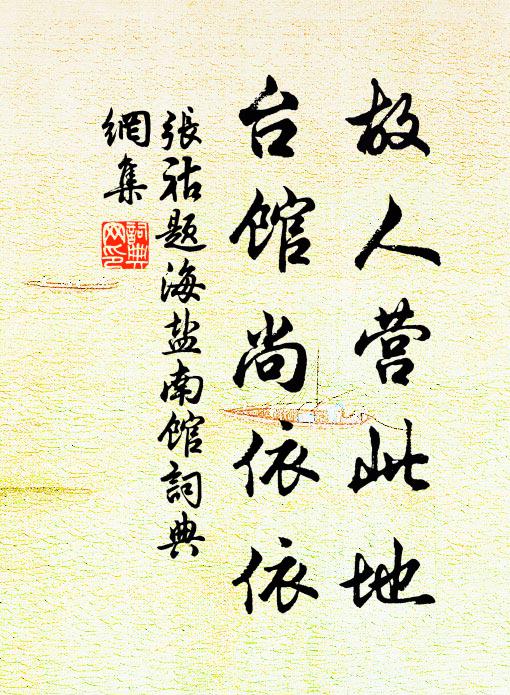 故人营此地
台馆尚依依
張祜题海盐南馆詞典
網集
詞典
网印